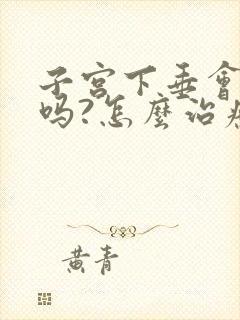 子宫下垂會
吗?怎麼治療
黄青